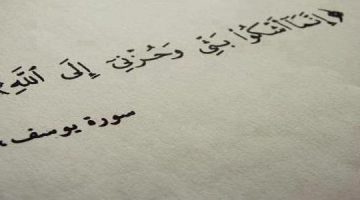 ﴿إِنَّمَا أَشْكُوا۟ بَثِّى وَحُزْنِىٓ إِلَى ٱللَّهِ﴾
سورة يوسف،